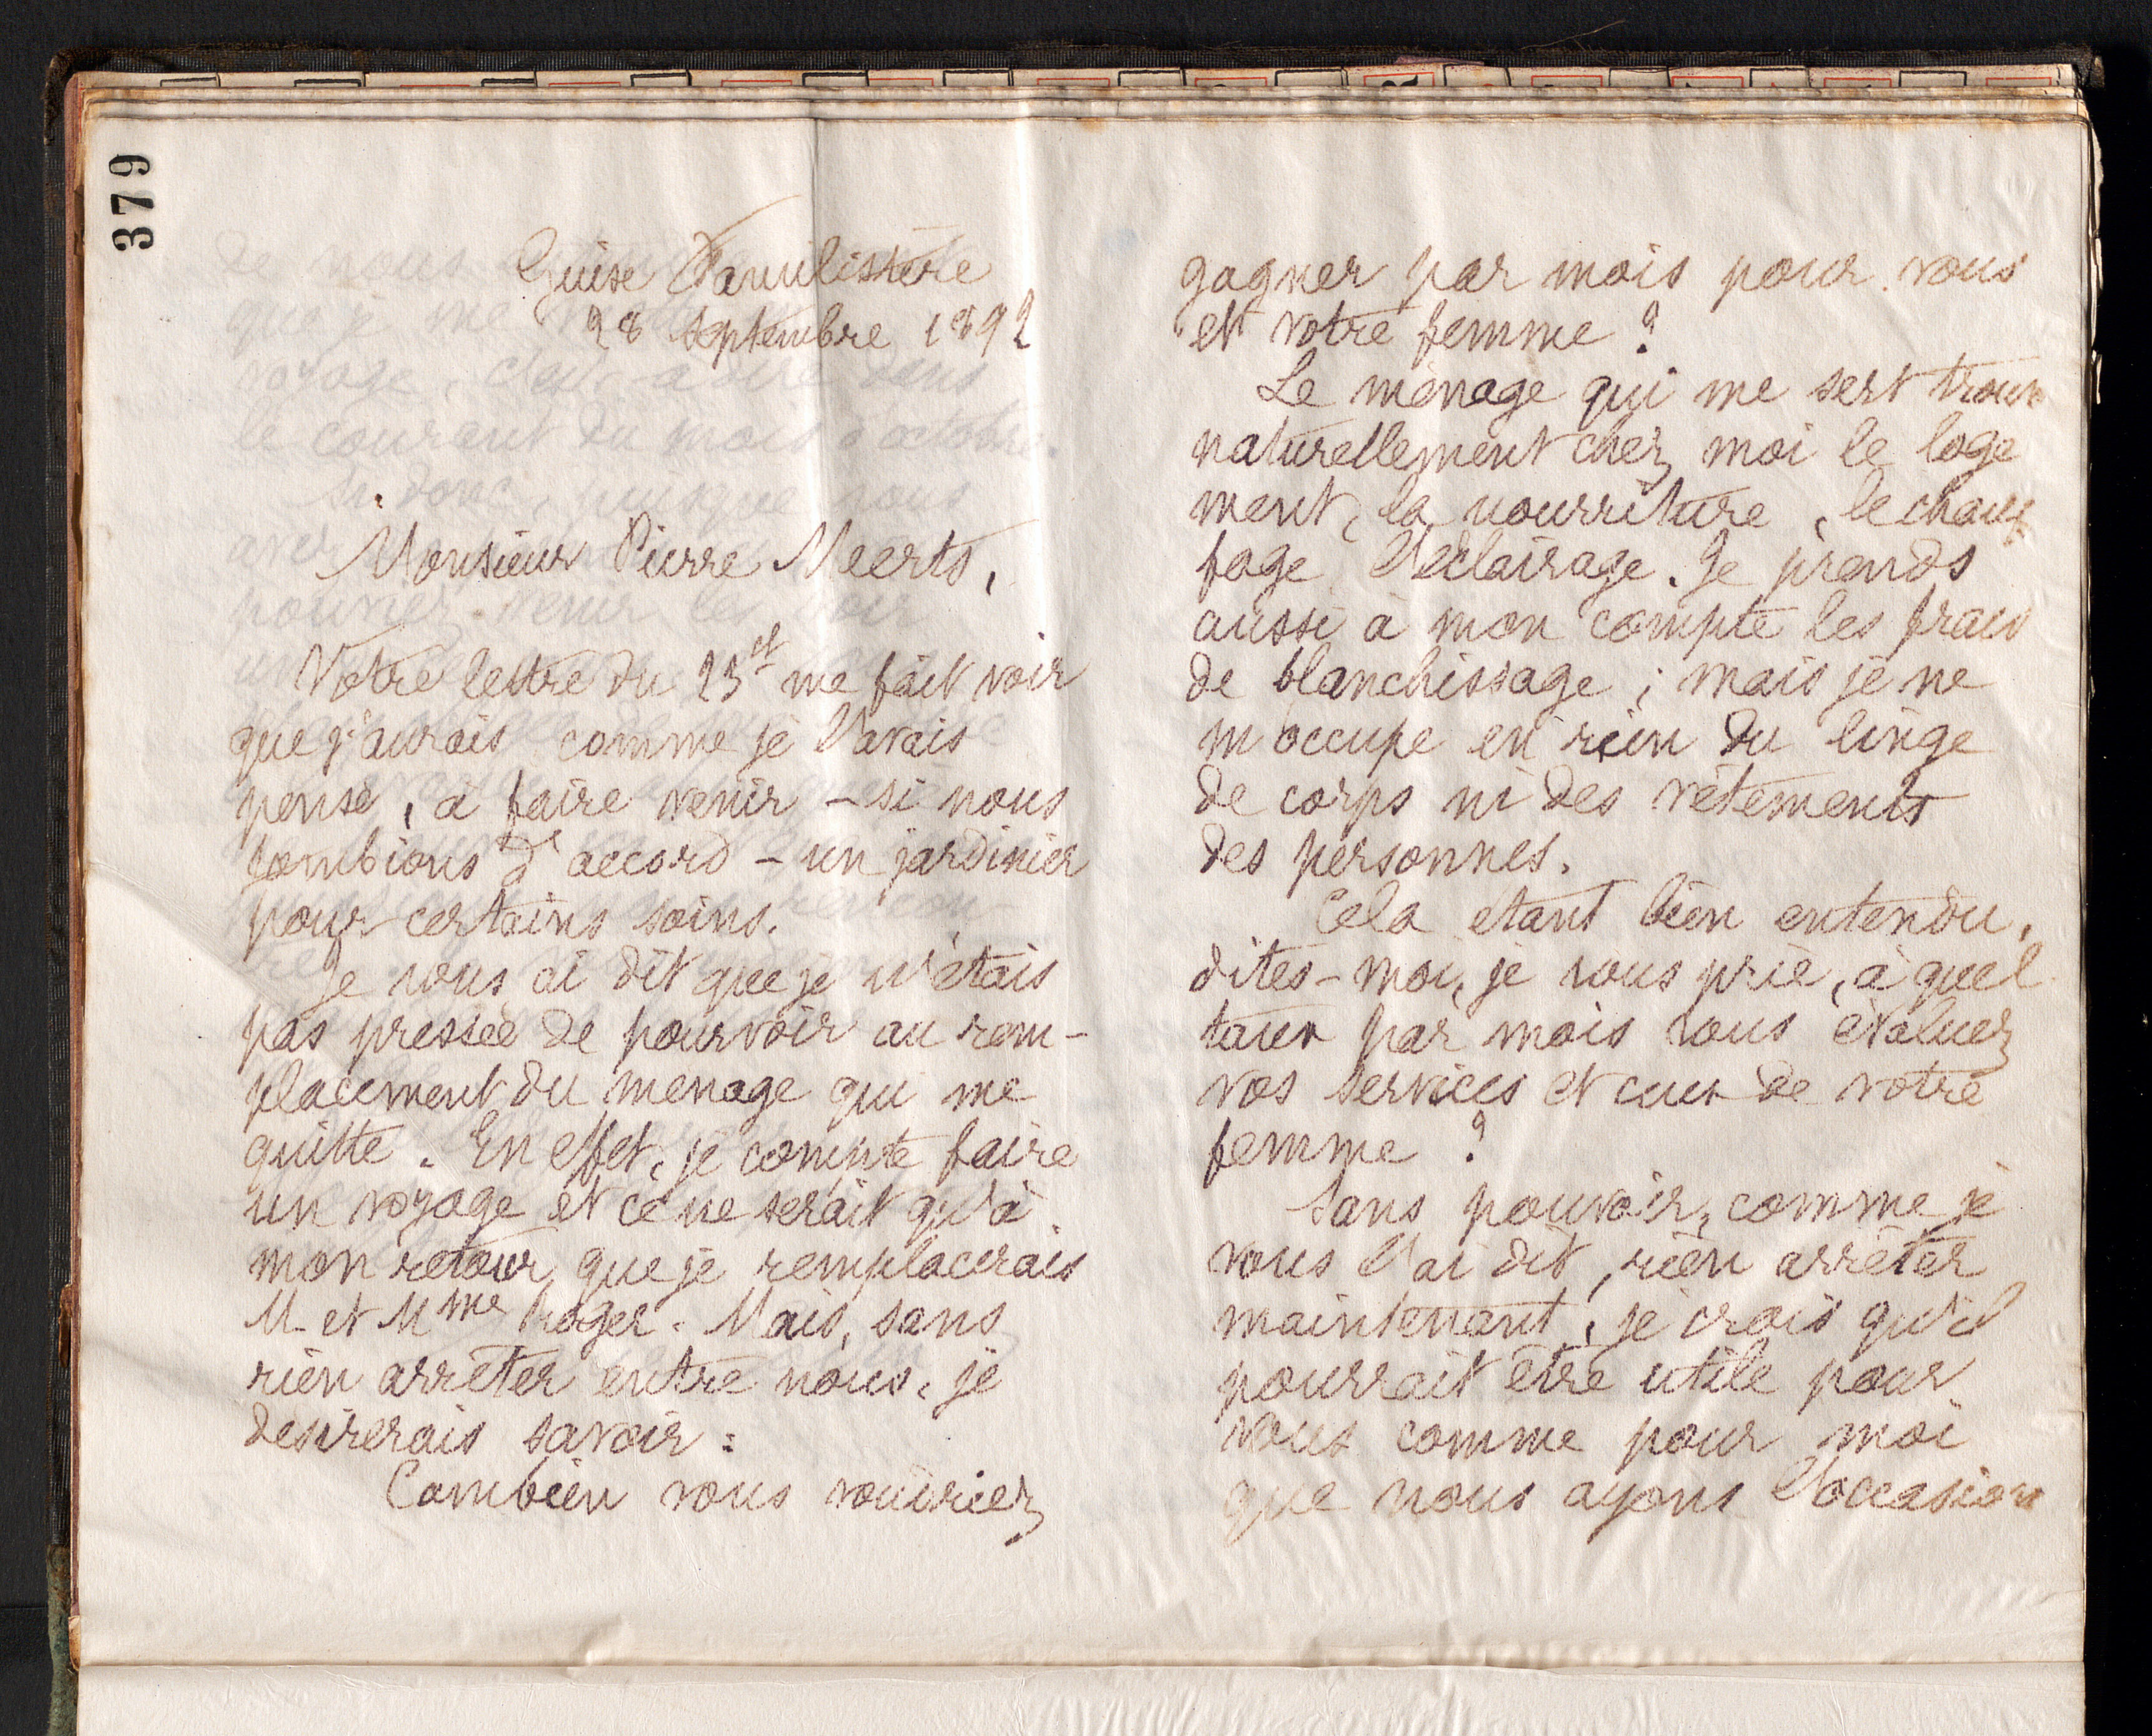 379
Guise Familistère
28 septembre 1892
Monsieur Pierre Meerts,
Votre lettre du 23 ct me fait voir
que j'aurais comme je l'avais
pensé, à faire venir - si nous
tombions d'accord - un jardinier
pour certains soins.
Je vous ai dit que je n'étais
pas pressée de pourvoir au rem-
placement du menage qui me
quitte. En effet, je compte faire
un voyage et ce ne serait qu'à
mon retour que je remplacerais
M. et Mme Roger. Mais, sans
rien arrêter entre nous, je
desirerais savoir :
Combien vous voudriez
gagner par mois pour vous
et votre femme ?
Le ménage qui me sert trouve
naturellement chez moi le loge
ment, la nourriture, le chauf
fage l'éclairage. Je prends
aussi à mon compte les frais
de blanchissage ; mais je ne
m'occupe en rien du linge
de corps ni des vêtements
des personnes.
Cela étant bien entendu,
dites-moi, je vous prie, à quel
taux par mois vous évaluez
vos services et ceux de votre
femme ?
Sans pouvoir, comme je
vous l'ai dit, rien arrêter
maintenant, je crois qu'il
pourrait être utile pour
vous comme pour moi
que nous ayons l'occasion